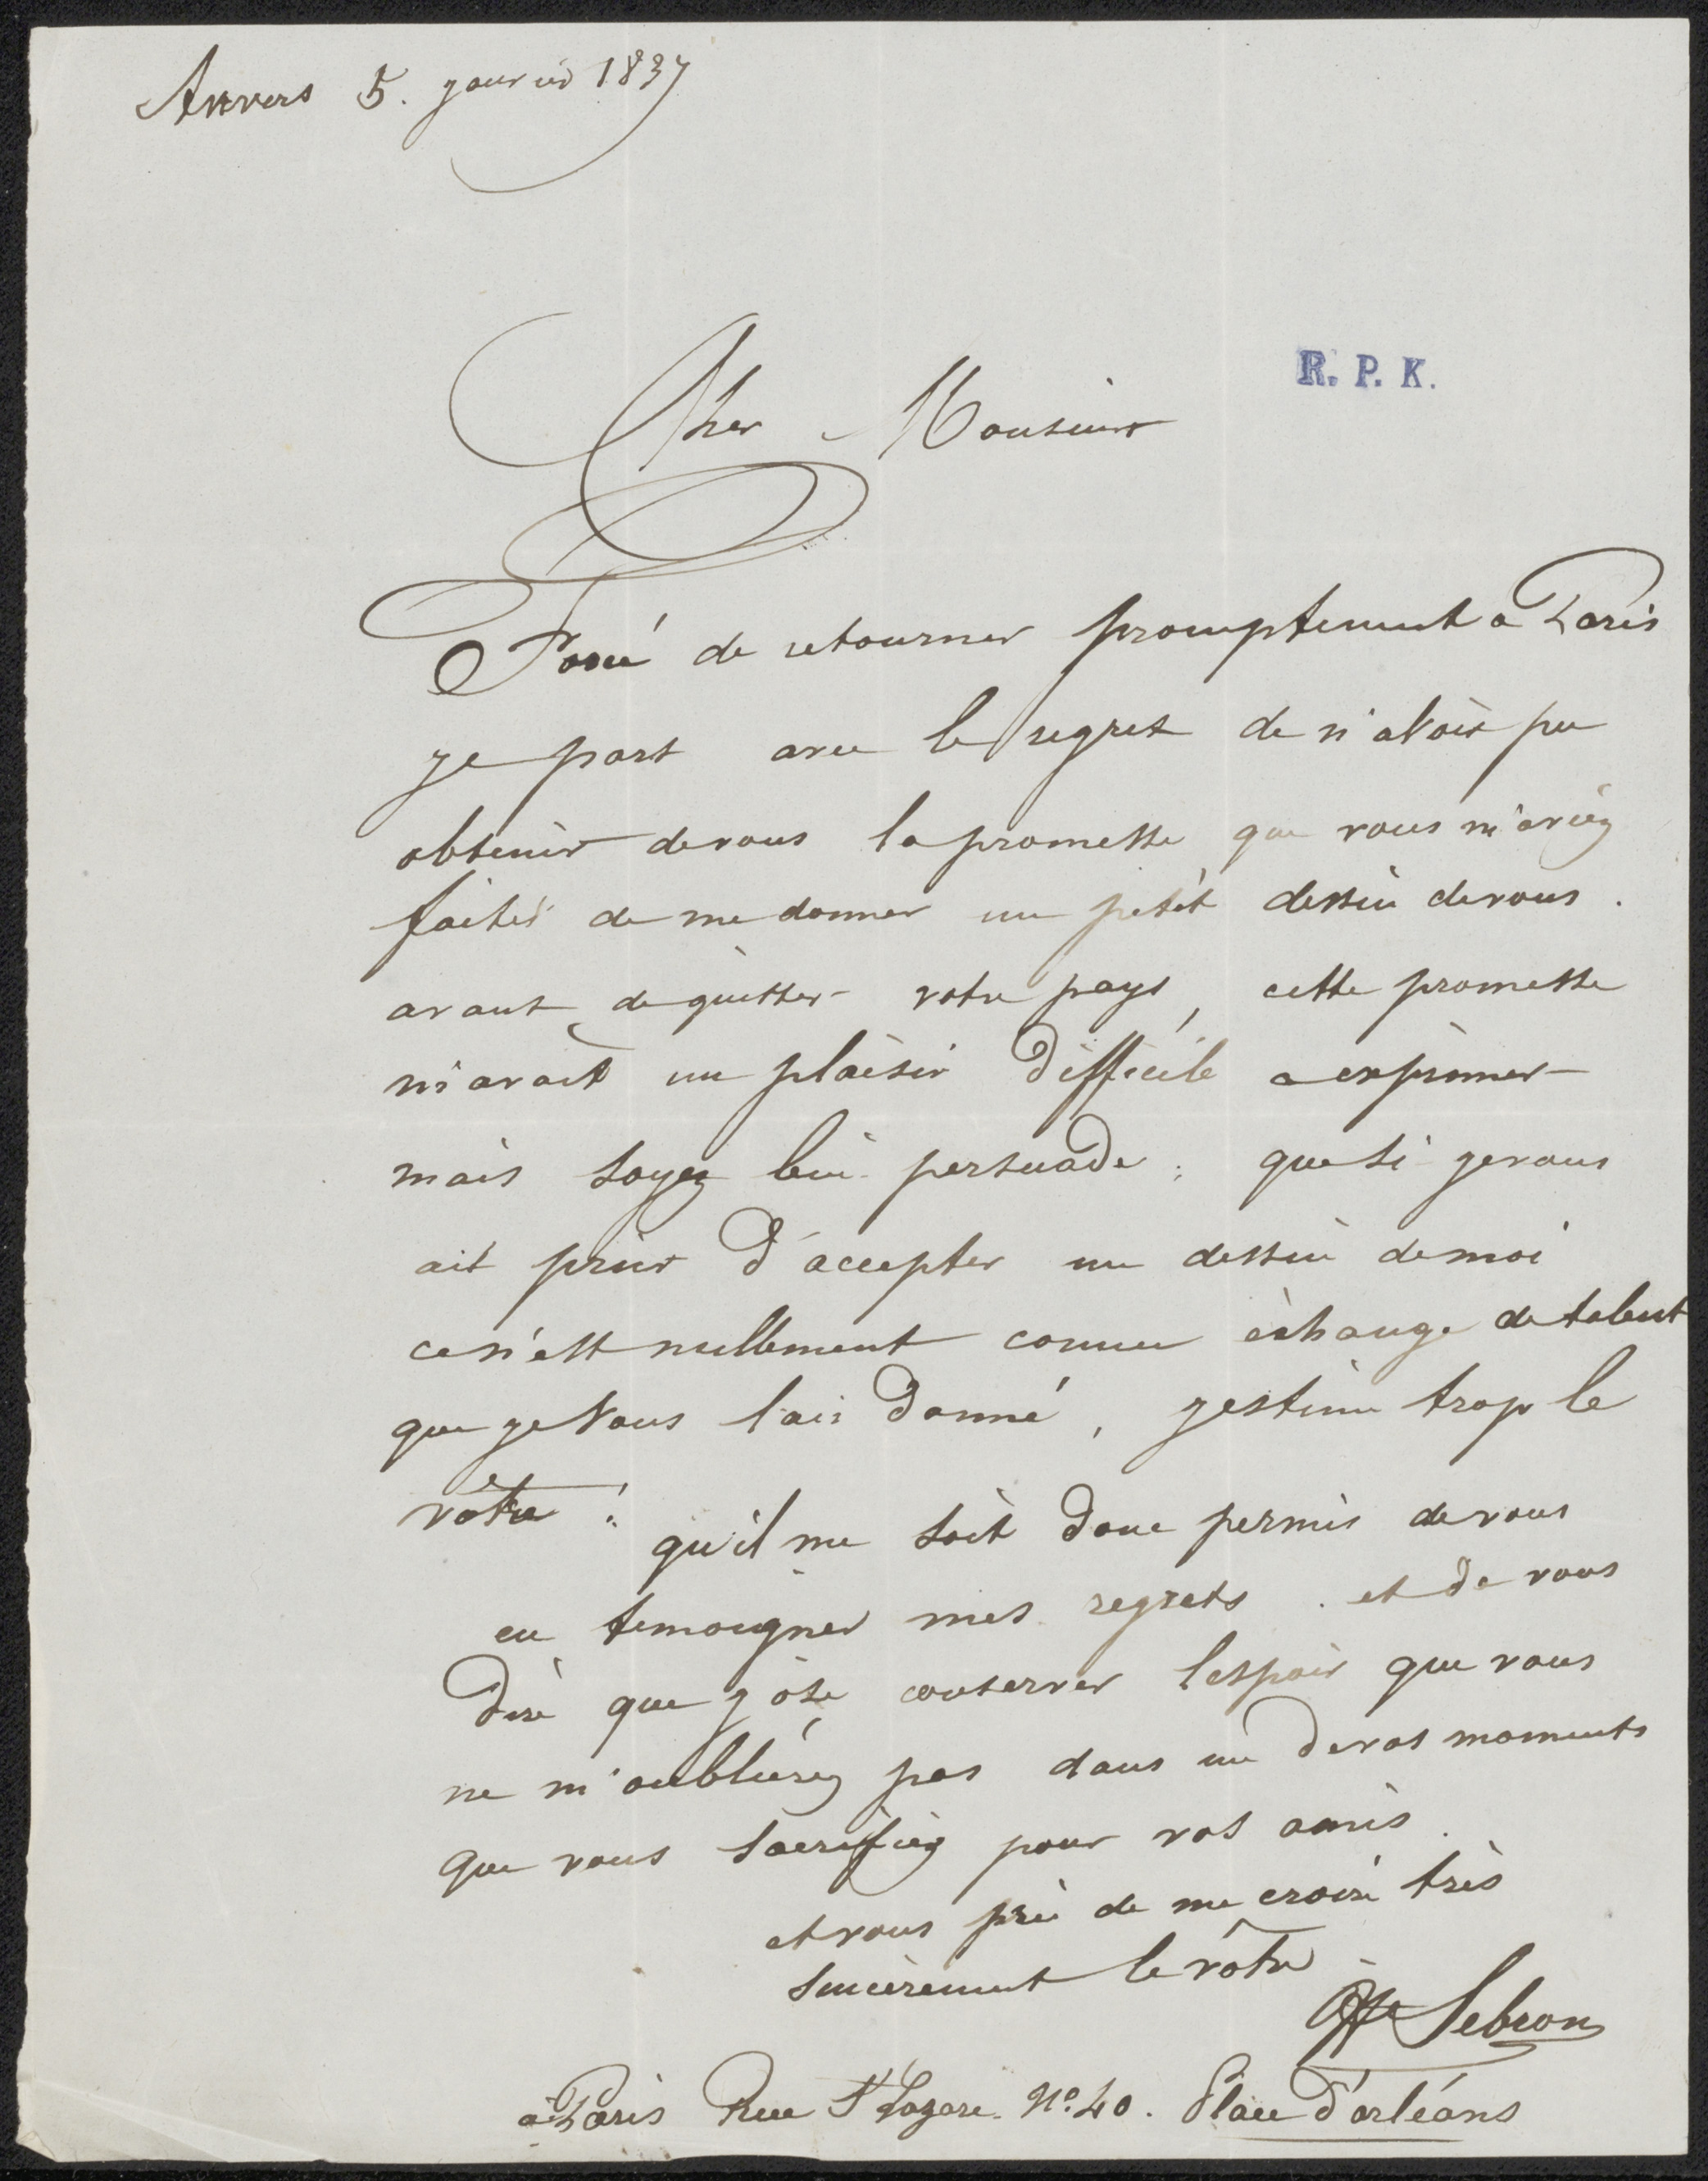 Anvers 5. janvier 1837
R. P. K.
Cher Monsieur
Forcé de retourner promptement a Paris
je part avec le regret de n'avoir pu
obtenir de vous la promesse que vous m'aviez
faites de me donner un petit dessin de vous.
avant de quitter votre pays, cette promesse
m'avait un plaisir difficile a exprimer
mais soyez bien persuade; que si je vous
ait prier d'accepter un dessin de moi
ce n'est nullement comme échange de talent
que je vous l'ais donné, j'estime trop le
vôtre: qu'il me soit donc permis de vous
en temoigner mes regrets. et de vous
dire que j'ôse conserver l'espoir que vous
ne m'oublierez pas dans un de vos moments
que vous sacrifiez pour vos amis.
et vous prie de me croire très
sincèrement le vôtre.
Hte Sebron
a Paris Rue St Lazare. No. 40. Place d'orléans